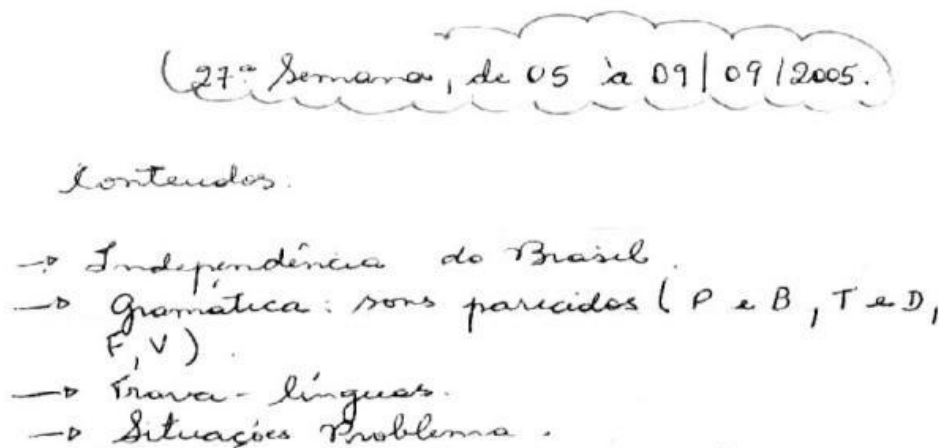 27ª Semana, de 05 à 09/09/2005.
Conteudos.
→ Independência do Brasil.
→ Gramática: sons parecidos (P e B, T e D,
F, V).
→ Trava-línguas.
→ Situações Problema.